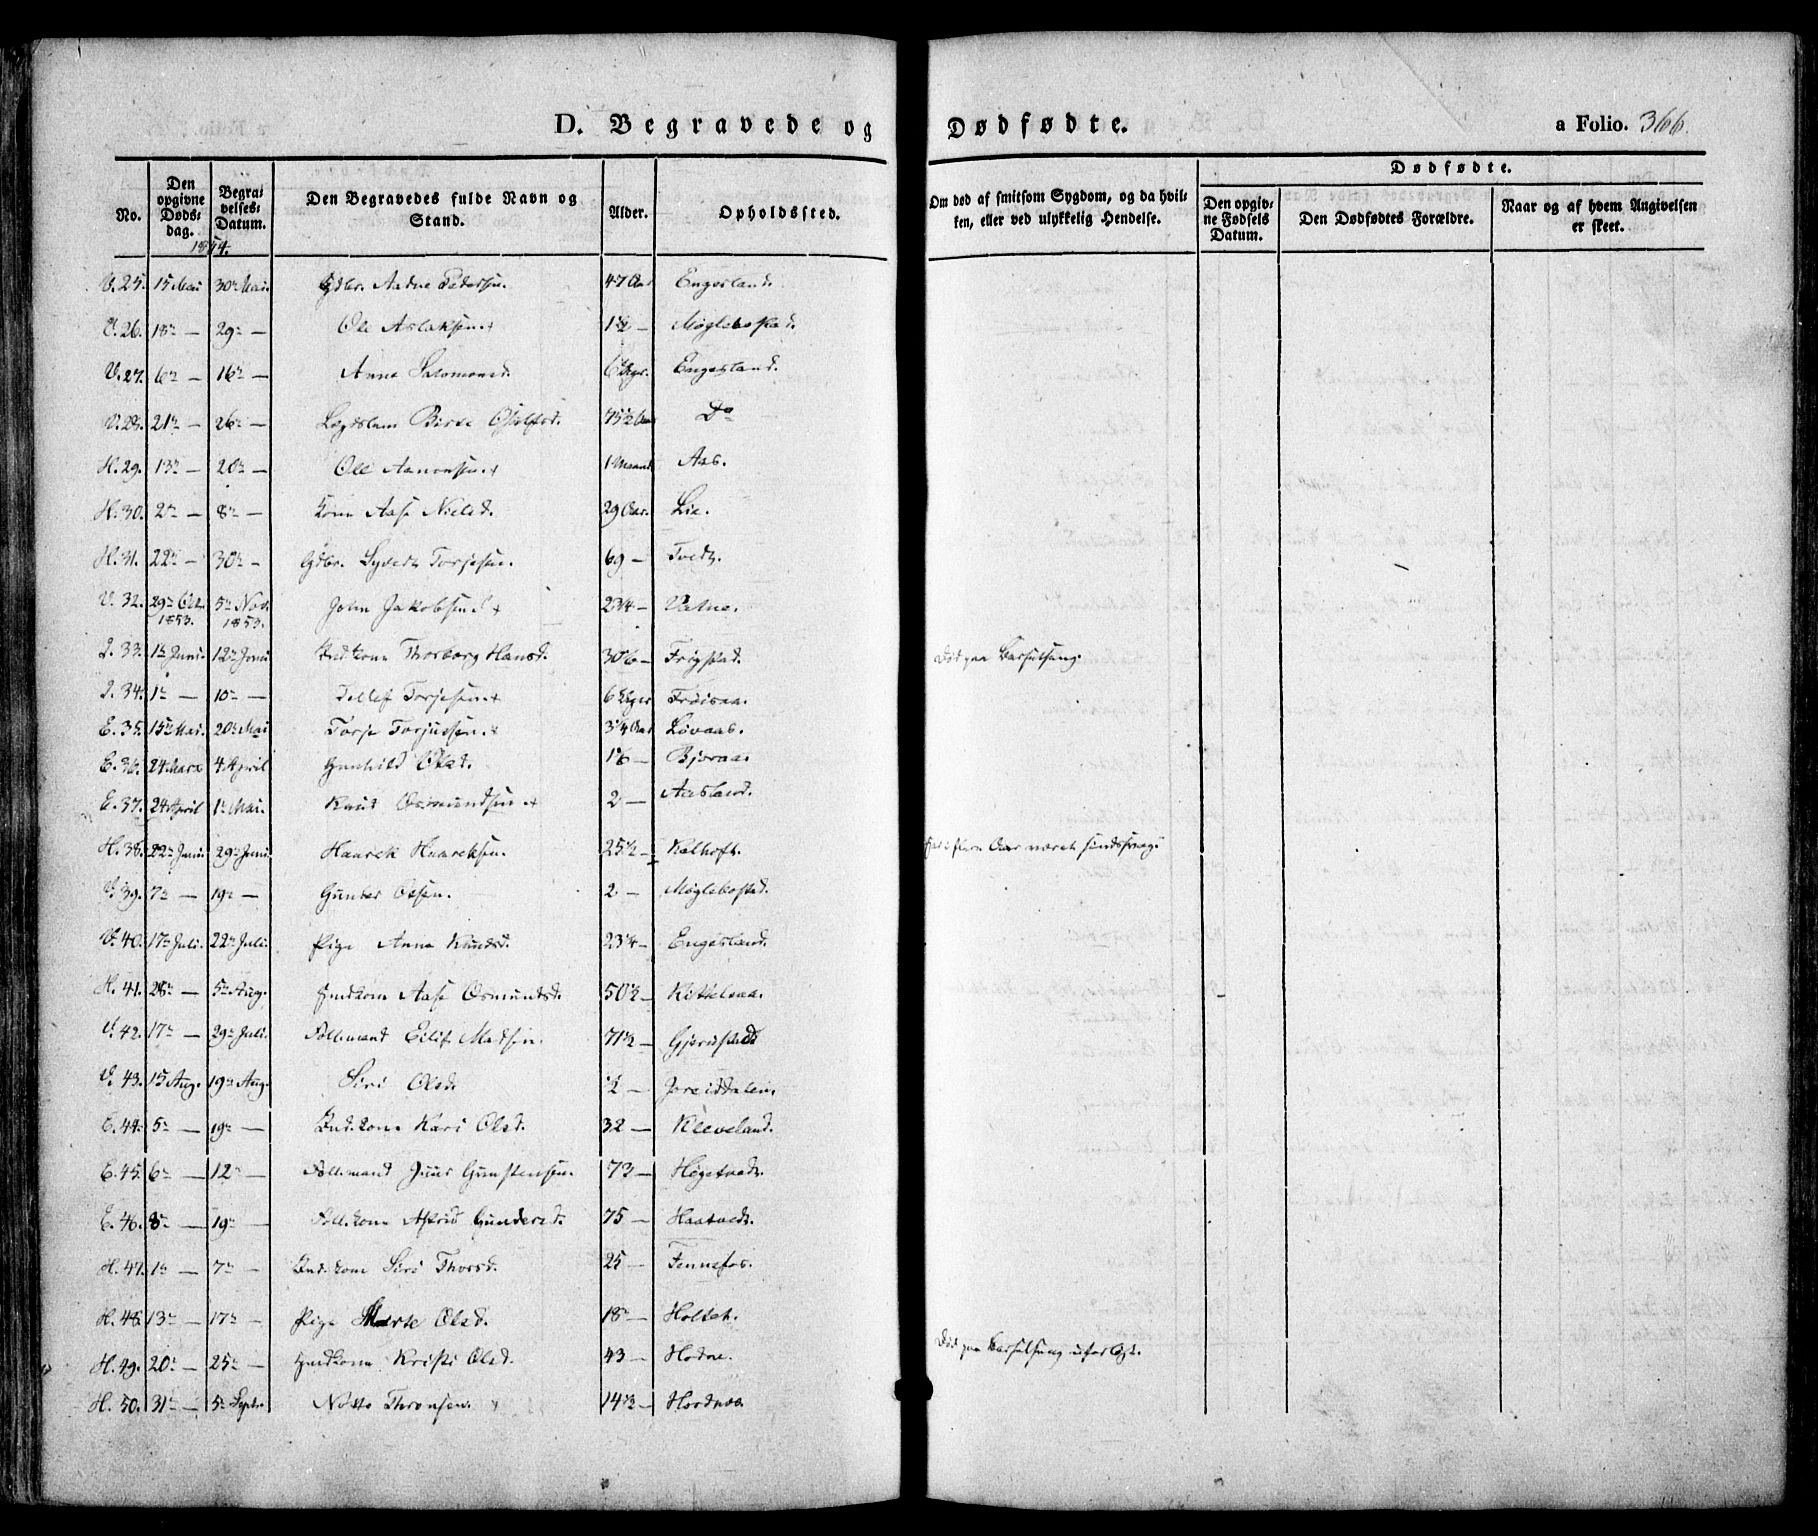 D. Begravede og Dødfødte.
a Folio. 366.
No. Den opgivne Døds-dag. Begra-velses-Datum. Den Begravedes fulde Navn og Stand. Alder. Opholdssted. Om død af smitsom Sygdom, og da hvilken, eller ved ulykkelig Hendelse. Dødfødte. Den opgivne Fødsels Datum. Den Dødfødtes Forældre. Naar og af hvem Angivelsen er skeet.
1854.
V. 25. 15 Mai 30te Mai. Gdbr. Aadne Pedersen. 47 Aar Engesland.
V. 26. 18de — 29de — Ole Aslaksen. 1½ — Møglebostad.
V. 27. 6te — 16de — Anne Salomonsd. 6 Uger. Engesland.
V. 28. 21de — 26de — Lægdslem Birte 75½ Aar Do
H. 29. 13de — 20de — Ole Aanonsen. 1 Maaned Aas.
H. 30. 2den — 8de — Kone Aase Nielsd. 29 Aar. Lie.
H. 31. 22de — 30te — Gdbr. Syvert Torjesen. 69 — Tvedt.
V. 32. 29de Oct. 1853. 5te Nov. 1853. John Jakobsen. 2¾ — Vatne.
I. 33. 1ste Juni. 12te Juni Indk. kone Thorborg Hansd. 30 — Frigstad. Død paa Barselseng.
I. 34. 1ste — 10de — Tellef Torjesen. 6 Uger Frøisaa.
E. 35. 15de Mai. 20de Mai Torje Torjussen. ¾ Aar Løvaas.
E. 36. 24 Marts 4 April Gunhild Olsd. 1 — Bjoraa.
E. 37. 24 April 1ste Mai. Knud Osmundsen. 2 — Aasland.
H. 38. 22de Juni. 29de Juni. Haarek Haareksen. 25½ — Kalhoft. Har i flere Aar været sindssvag.
V. 39. 7de — 19de — Gunder Olsen. 2 — Møglebostad.
V. 40. 17de Juli. 22de Juli. Pige Anne Knudsd. 23¼ — Engesland.
H. 41. 28de — 5te Aug. Gmdkone Aase Osmundsd. 50½ — Kittelsaa.
V. 42. 17de — 29de Juli. Follemand Eilif Madsen. 71½ — Gjerustad
V. 43. 15 Aug. 19de Aug. Siri Olsd. ½ — Joreiddalen.
E. 44. 5te — 19de — Ind. kone Kari Olsd. 32 — Kleveland.
E. 45. 6te — 12te — Follemand Guur Gunstensen. 73 — Høgetvedt.
E. 46. 8de — 19de — Follkone Astrid Gundersd. 75 — Haatvedt.
H. 47. 1ste — 7de — Ind. kone Siri Thorsd. 25 — Fennefos.
H. 48. 13de — 17de — Pige Marte Olsd. 18 — Holtet.
H. 49. 20de — 25de — Gmdkone Kristi Olsd. 43 — Hodne. Død paa Barselseng uforløst.
H. 50. 31te — 5te Septr. Thronsen. 14½ — Hordnæs